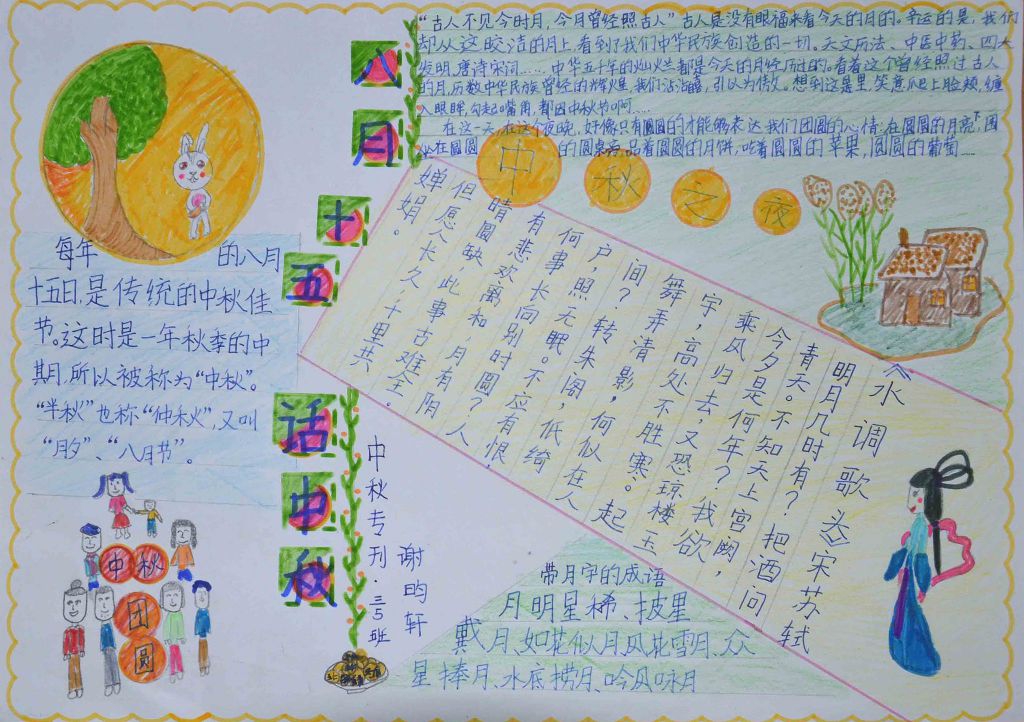 八月十五话中秋
“古人不见今时月，今月曾经照古人”古人是没有眼福来看今天的月的。幸运的是，我们
却从这皎洁的月上，看到了我们中华民族创造的一切。天文历法、中医中药、四大
发明，唐诗宋词……，中华五千年的灿烂都是今天的月经历过的。看着这个曾经照过古人
的月，历数中华民族曾经的辉煌，我们引以为傲。想到这是里，笑意爬上脸颊，缠
入眼眸，勾起嘴角，都因中秋节啊……
在这一天，在这个夜晚，好像只有圆圆的才能够表达我们团圆的心情：在圆圆的月亮下，围
坐在圆圆的圆桌旁，品着圆圆的月饼，吃着圆圆的苹果，圆圆的葡萄……
中秋之夜
每年的八月
十五日，是传统的中秋佳
节。这时是一年秋季的中
期，所以被称为“中秋”。
“半秋”也称“仲秋”，又叫
“月夕”、“八月节”。
《水调歌头》宋苏轼
明月几时有？把酒问
青天。不知天上宫阙，
今夕是何年？我欲
乘风归去，又恐琼楼玉
宇，高处不胜寒。起
舞弄清影，何似在人
间？转朱阁，低绮
户，照无眠。不应有恨，
何事长向别时圆？人
有悲欢离和，月有阴
晴圆缺，此事古难全。
但愿人长久，千里共
婵娟。
中秋专刊·三5班
谢昀轩
中秋
团
圆
带月字的成语
月明星稀、披星
戴月、如花似月、风花雪月、众
星捧月、水底捞月、吟风咏月